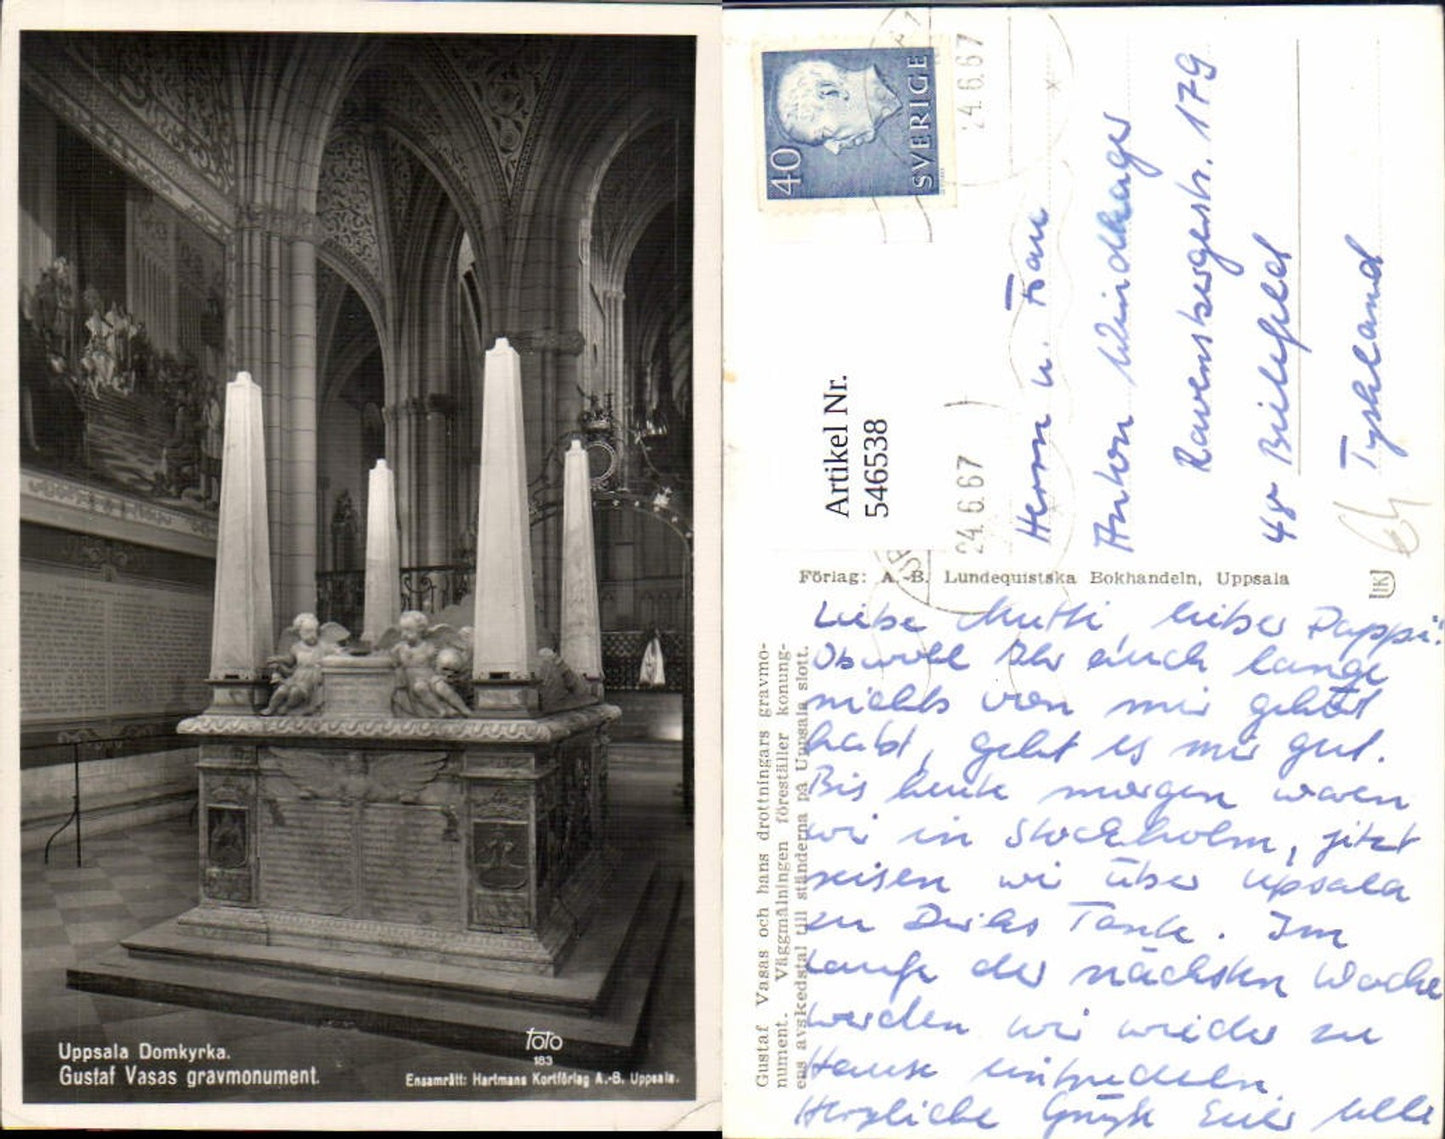 Uppsala Domkyrka.
Gustaf Vasas gravmonument.
foto
183
Ensamrätt: Hartmans Kortförlag A.-B. Uppsala.
SVERIGE
40
24.6.67
24.6.67
Artikel Nr.
546538
Herrn u. Frau
Anton Windhager
Ravensbergerstr. 179
48 Bielefeld
Tyskland
Förlag: A.-B. Lundequistska Bokhandeln, Uppsala
Gustaf Vasas och hans drottningars gravmo-
nument. Väggmålningen föreställer konung-
ens avskedstal till ständerna på Uppsala slott.
Liebe Mutti, lieber Pappi!
Obwohl Ihr auch lange
nichts von mir gehört
habt, geht es mir gut.
Bis heute morgen waren
wir in Stockholm, jetzt
reisen wir über Upsala
zu Tante. Im
Laufe der nächsten Woche
werden wir wieder zu
Hause eintrudeln
Herzliche Grüße Euer